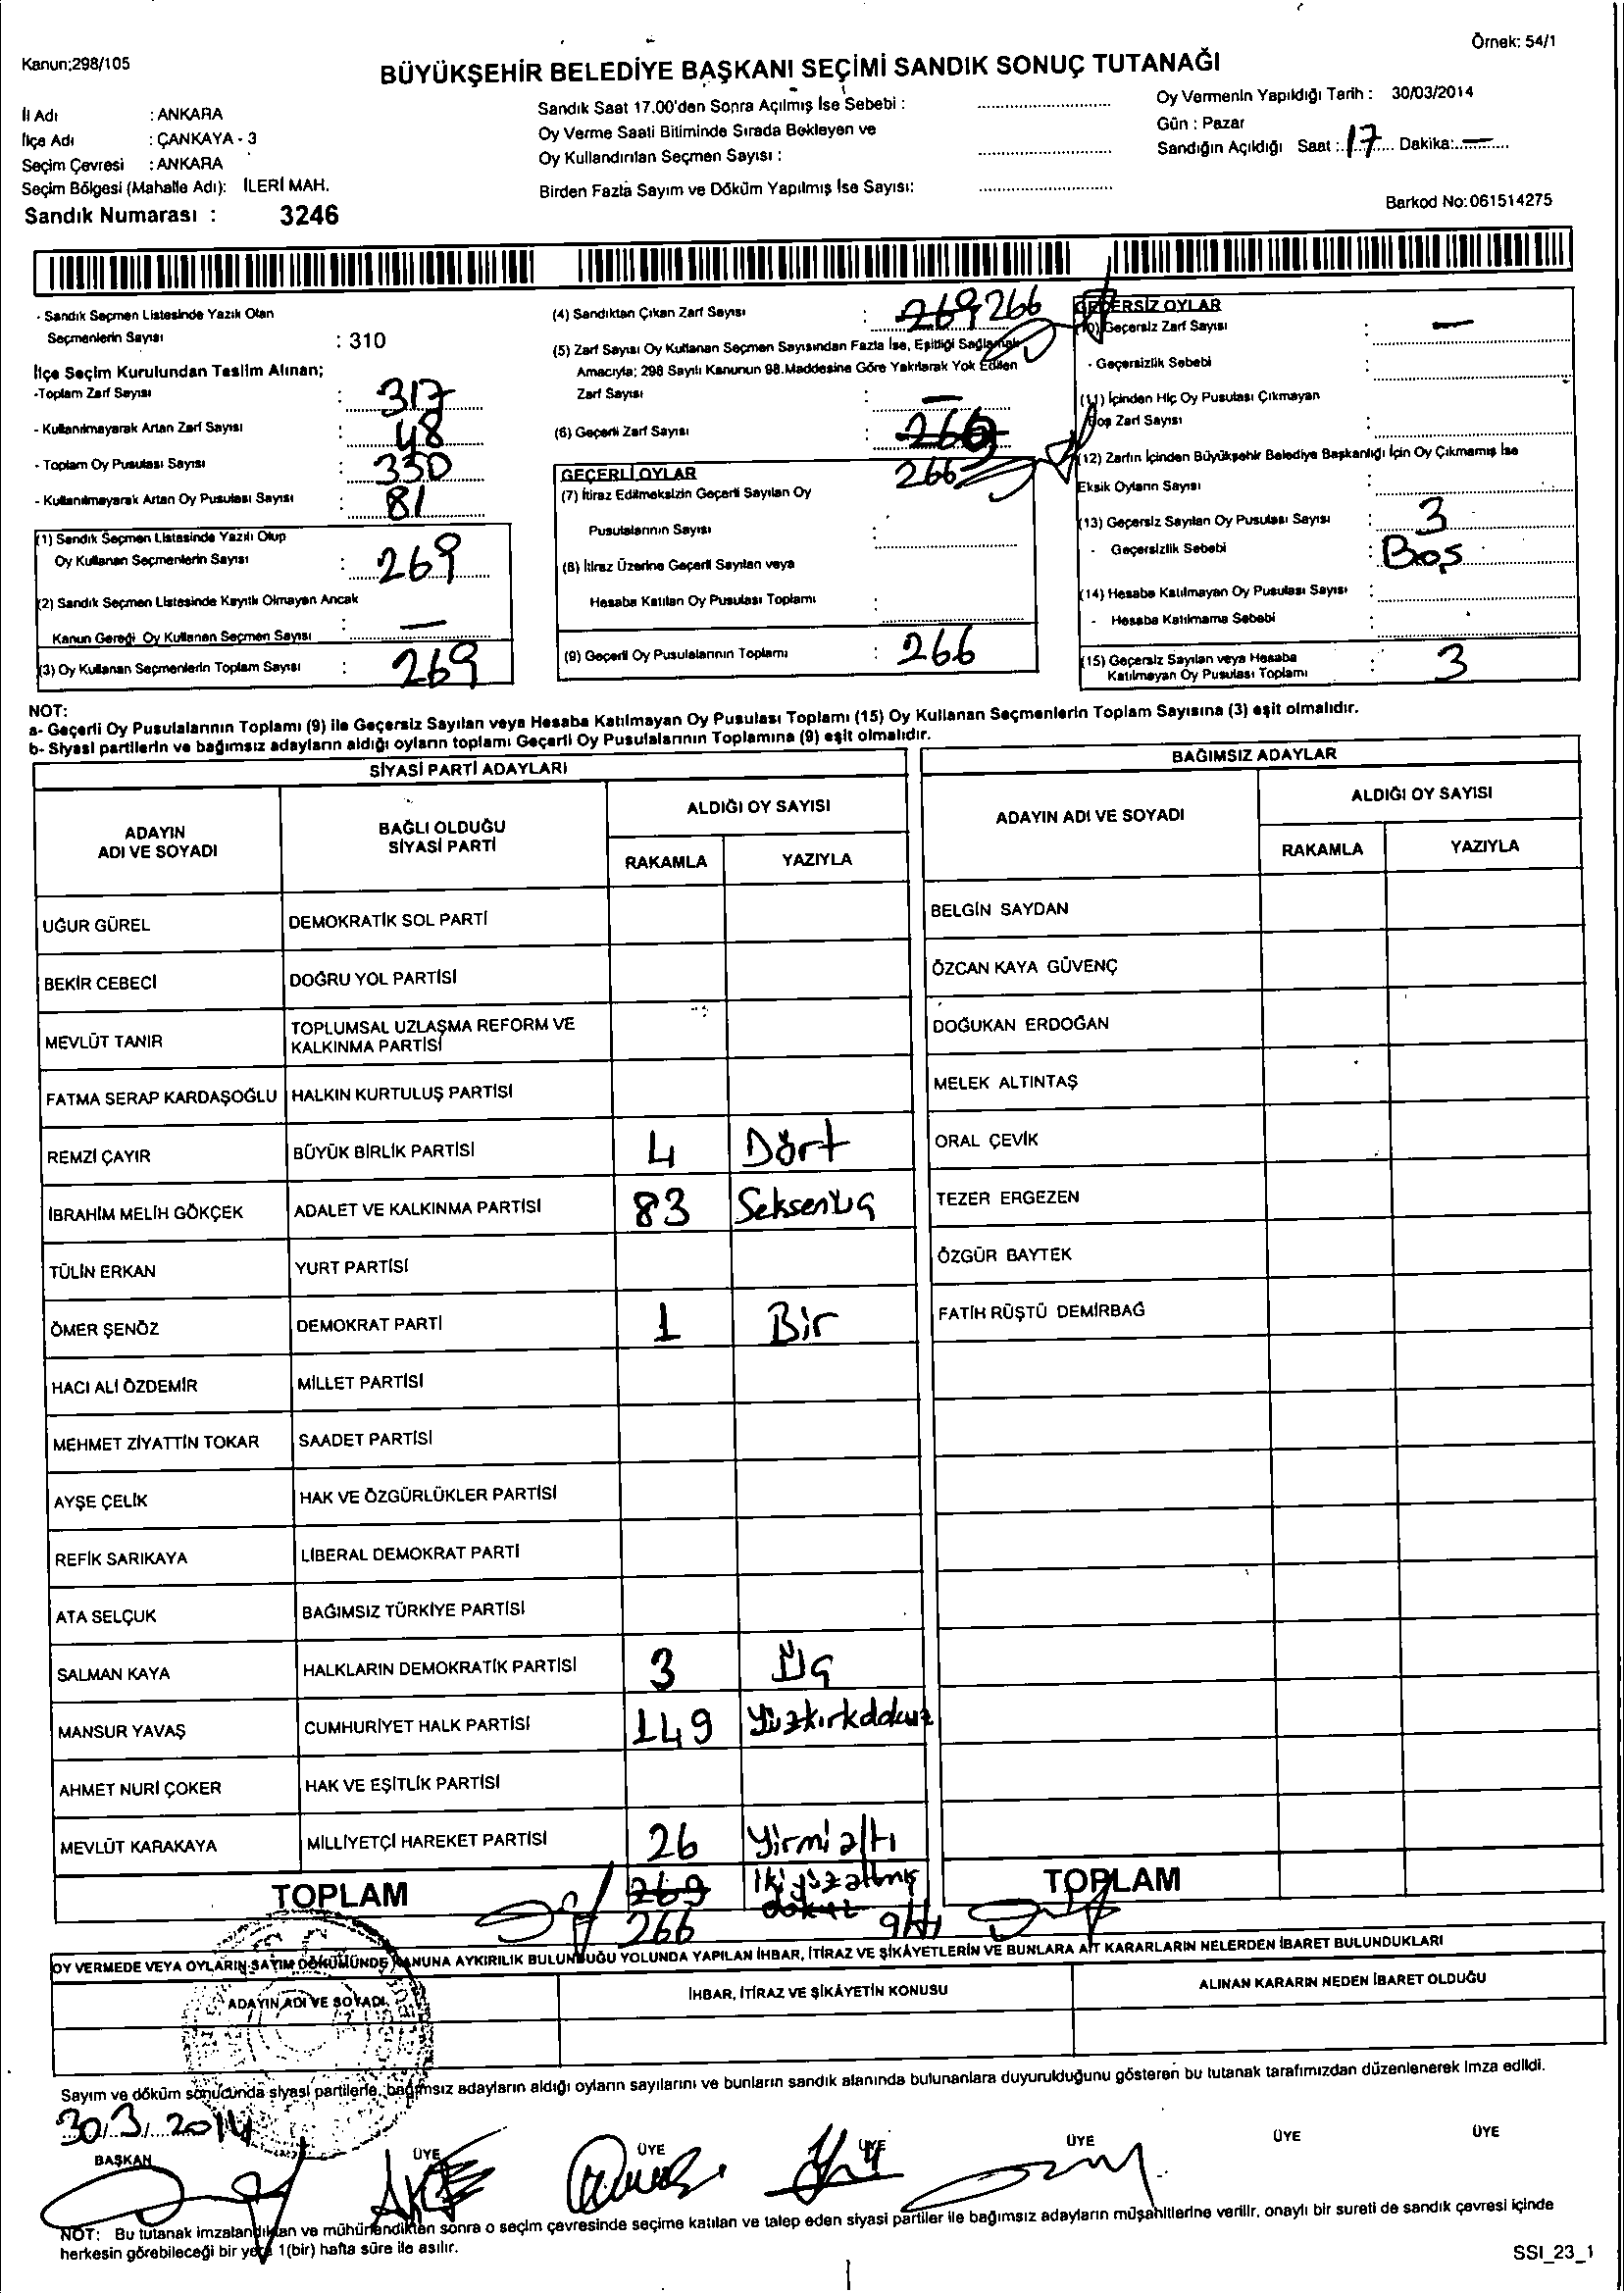 Örnek: 54/1
Kanun;298/105
BÜYÜKŞEHİR BELEDİYE BAŞKANI SEÇİMİ SANDIK SONUÇ TUTANAĞI
İl Adı : ANKARA
İlçe Adı : ÇANKAYA - 3
Seçim Çevresi : ANKARA
Seçim Bölgesi (Mahalle Adı): İLERİ MAH.
Sandık Numarası : 3246
Sandık Saat 17.00'den Sonra Açılmış İse Sebebi :
Oy Verme Saati Bitiminde Sırada Bekleyen ve
Oy Kullandırılan Seçmen Sayısı :
Birden Fazla Sayım ve Döküm Yapılmış İse Sayısı:
Oy Vermenin Yapıldığı Tarih : 30/03/2014
Gün : Pazar
Sandığın Açıldığı Saat : 17 Dakika: —
Barkod No:061514275
- Sandık Seçmen Listesinde Yazılı Olan
Seçmenlerin Sayısı : 310
İlçe Seçim Kurulundan Teslim Alınan;
-Toplam Zarf Sayısı : 317
- Kullanılmayarak Artan Zarf Sayısı : 48
- Toplam Oy Pusulası Sayısı : 350
- Kullanılmayarak Artan Oy Pusulası Sayısı : 81
(1) Sandık Seçmen Listesinde Yazılı Olup
Oy Kullanan Seçmenlerin Sayısı : 269
(2) Sandık Seçmen Listesinde Kayıtlı Olmayan Ancak
Kanun Gereği Oy Kullanan Seçmen Sayısı : —
(3) Oy Kullanan Seçmenlerin Toplam Sayısı : 269
(4) Sandıktan Çıkan Zarf Sayısı : 269 266
(5) Zarf Sayısı Oy Kullanan Seçmen Sayısından Fazla İse, Eşitliği Sağlamak
Amacıyla; 298 Sayılı Kanunun 98.Maddesine Göre Yakılarak Yok Edilen
Zarf Sayısı : —
(6) Geçerli Zarf Sayısı : 269
266
GEÇERLİ OYLAR
(7) İtiraz Edilmeksizin Geçerli Sayılan Oy
Pusulalarının Sayısı :
(8) İtiraz Üzerine Geçerli Sayılan veya
Hesaba Katılan Oy Pusulası Toplamı :
(9) Geçerli Oy Pusulalarının Toplamı : 266
GEÇERSİZ OYLAR
(10) Geçersiz Zarf Sayısı : —
- Geçersizlik Sebebi :
(11) İçinden Hiç Oy Pusulası Çıkmayan
Boş Zarf Sayısı :
(12) Zarfın İçinden Büyükşehir Belediye Başkanlığı İçin Oy Çıkmamış İse
Eksik Oyların Sayısı :
(13) Geçersiz Sayılan Oy Pusulası Sayısı : 3
- Geçersizlik Sebebi : Boş
(14) Hesaba Katılmayan Oy Pusulası Sayısı :
- Hesaba Katılmama Sebebi :
(15) Geçersiz Sayılan veya Hesaba
Katılmayan Oy Pusulası Toplamı : 3
NOT:
a- Geçerli Oy Pusulalarının Toplamı (9) ile Geçersiz Sayılan veya Hesaba Katılmayan Oy Pusulası Toplamı (15) Oy Kullanan Seçmenlerin Toplam Sayısına (3) eşit olmalıdır.
b- Siyasi partilerin ve bağımsız adayların aldığı oyların toplamı Geçerli Oy Pusulalarının Toplamına (9) eşit olmalıdır.
SİYASİ PARTİ ADAYLARI
ADAYIN ADI VE SOYADI
BAĞLI OLDUĞU SİYASİ PARTİ
ALDIĞI OY SAYISI
RAKAMLA YAZIYLA
UĞUR GÜREL DEMOKRATİK SOL PARTİ
BEKİR CEBECİ DOĞRU YOL PARTİSİ
MEVLÜT TANIR TOPLUMSAL UZLAŞMA REFORM VE
KALKINMA PARTİSİ
FATMA SERAP KARDAŞOĞLU HALKIN KURTULUŞ PARTİSİ
REMZİ ÇAYIR BÜYÜK BİRLİK PARTİSİ 4 Dört
İBRAHİM MELİH GÖKÇEK ADALET VE KALKINMA PARTİSİ 83 Seksenüç
TÜLİN ERKAN YURT PARTİSİ
ÖMER ŞENÖZ DEMOKRAT PARTİ 1 Bir
HACI ALİ ÖZDEMİR MİLLET PARTİSİ
MEHMET ZİYATTİN TOKAR SAADET PARTİSİ
AYŞE ÇELİK HAK VE ÖZGÜRLÜKLER PARTİSİ
REFİK SARIKAYA LİBERAL DEMOKRAT PARTİ
ATA SELÇUK BAĞIMSIZ TÜRKİYE PARTİSİ
SALMAN KAYA HALKLARIN DEMOKRATİK PARTİSİ 3 Üç
MANSUR YAVAŞ CUMHURİYET HALK PARTİSİ 149 Yüzkırkdokuz
AHMET NURİ ÇOKER HAK VE EŞİTLİK PARTİSİ
MEVLÜT KARAKAYA MİLLİYETÇİ HAREKET PARTİSİ 26 Yirmialtı
TOPLAM 269 İkiyüzaltmış
dokuz
266 altı
BAĞIMSIZ ADAYLAR
ADAYIN ADI VE SOYADI
ALDIĞI OY SAYISI
RAKAMLA YAZIYLA
BELGİN SAYDAN
ÖZCAN KAYA GÜVENÇ
DOĞUKAN ERDOĞAN
MELEK ALTINTAŞ
ORAL ÇEVİK
TEZER ERGEZEN
ÖZGÜR BAYTEK
FATİH RÜŞTÜ DEMİRBAĞ
TOPLAM
OY VERMEDE VEYA OYLARIN SAYIM DÖKÜMÜNDE KANUNA AYKIRILIK BULUNDUĞU YOLUNDA YAPILAN İHBAR, İTİRAZ VE ŞİKÂYETLERİN VE BUNLARA AİT KARARLARIN NELERDEN İBARET BULUNDUKLARI
ADAYIN ADI VE SOYADI
İHBAR, İTİRAZ VE ŞİKÂYETİN KONUSU
ALINAN KARARIN NEDEN İBARET OLDUĞU
Sayım ve döküm sonucunda siyasi partilerle, bağımsız adayların aldığı oyların sayılarını ve bunların sandık alanında bulunanlara duyurulduğunu gösteren bu tutanak tarafımızdan düzenlenerek imza edildi.
30/3/2014
BAŞKAN ÜYE ÜYE ÜYE ÜYE ÜYE ÜYE
NOT: Bu tutanak imzalandıktan ve mühürlendikten sonra o seçim çevresinde seçime katılan ve talep eden siyasi partiler ile bağımsız adayların müşahitlerine verilir, onaylı bir sureti de sandık çevresi içinde
herkesin görebileceği bir yere 1(bir) hafta süre ile asılır.
SSI_23_1